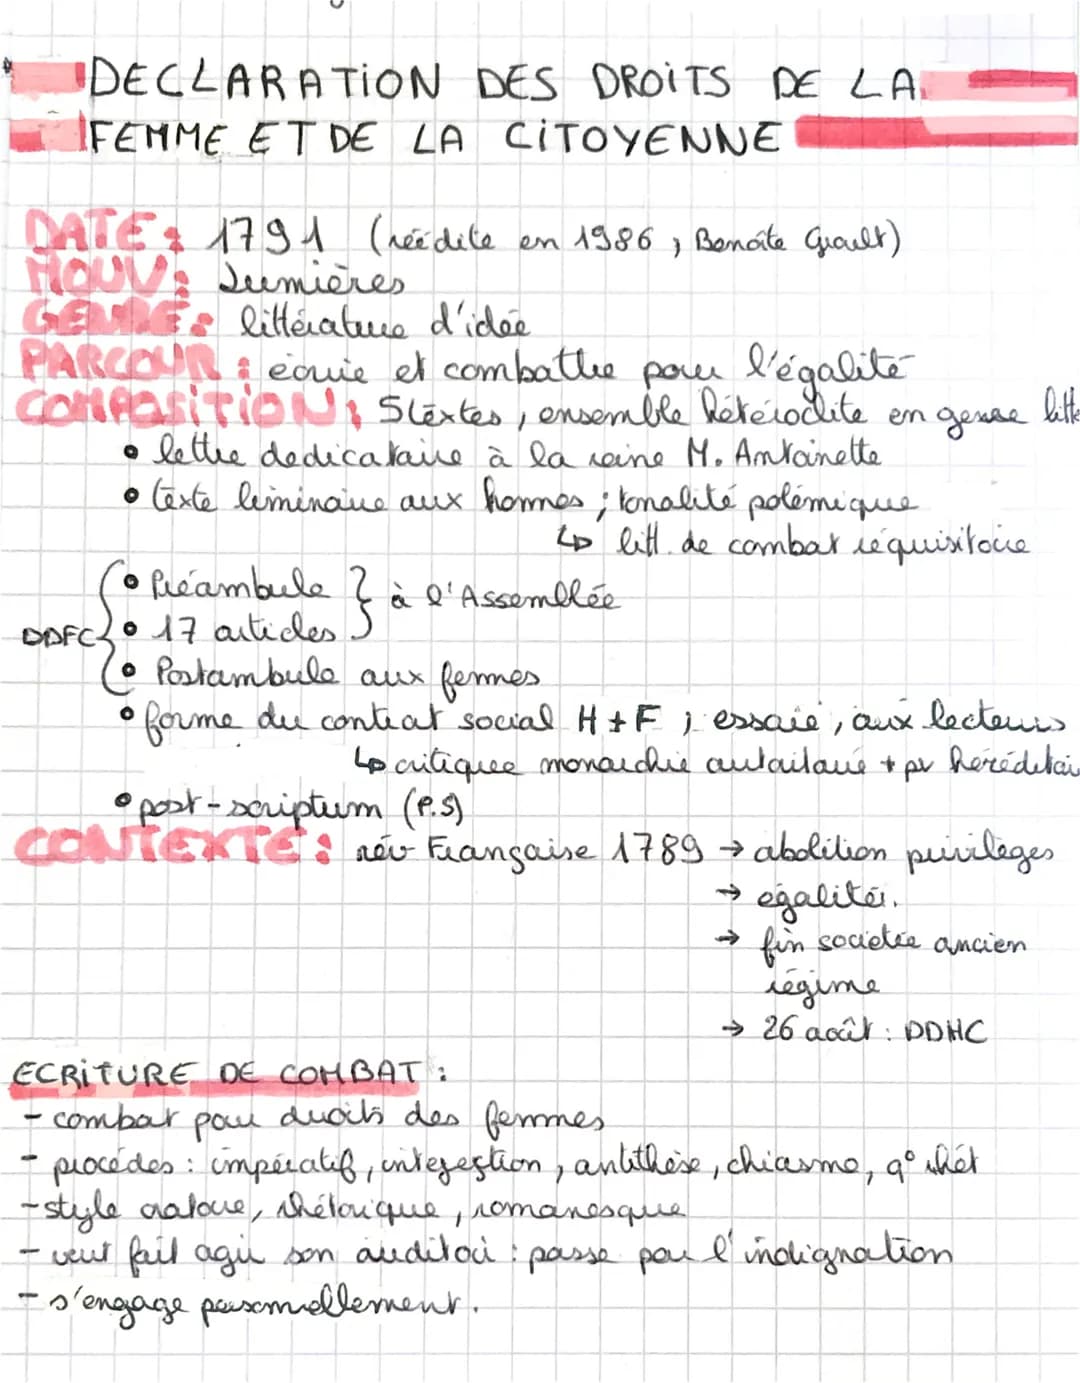 DECLARATION DES DROITS DE LA
FEMME ET DE LA CITOYENNE
DATE : 1791 (réédite en 1986, Benoîte Groult)
MOUV : Lumières
GENRE : littérature d'idée
PARCOUR : écrire et combattre pour l'égalité
COMPOSITION : 5 textes, ensemble hétéroclite en genre litte
• lettre dedicataire à la reine M. Antoinette
• texte liminaire aux hommes ; tonalité polémique
↳ litt. de combat réquisitoire
• Préambule } à l'Assemblée
DDFC { • 17 articles
• Postambule aux femmes
• forme du contrat social H + F ; essaie, aux lecteurs
↳ critiquee monarchie autoritaire + pv herédetai
• post-scriptum (P.S)
CONTEXTE : rév Française 1789 → abolition privilèges
→ égalités.
→ fin societée ancien
régime
→ 26 août : DDHC
ECRITURE DE COMBAT :
- combat pour droits des femmes
- procédes : impératif, interjection, antithèse, chiasme, q° rhét
- style oratoire, rhétorique, romanesque
- veut fait agir son auditoi : passe par l'indignation
- s'engage personnellement.